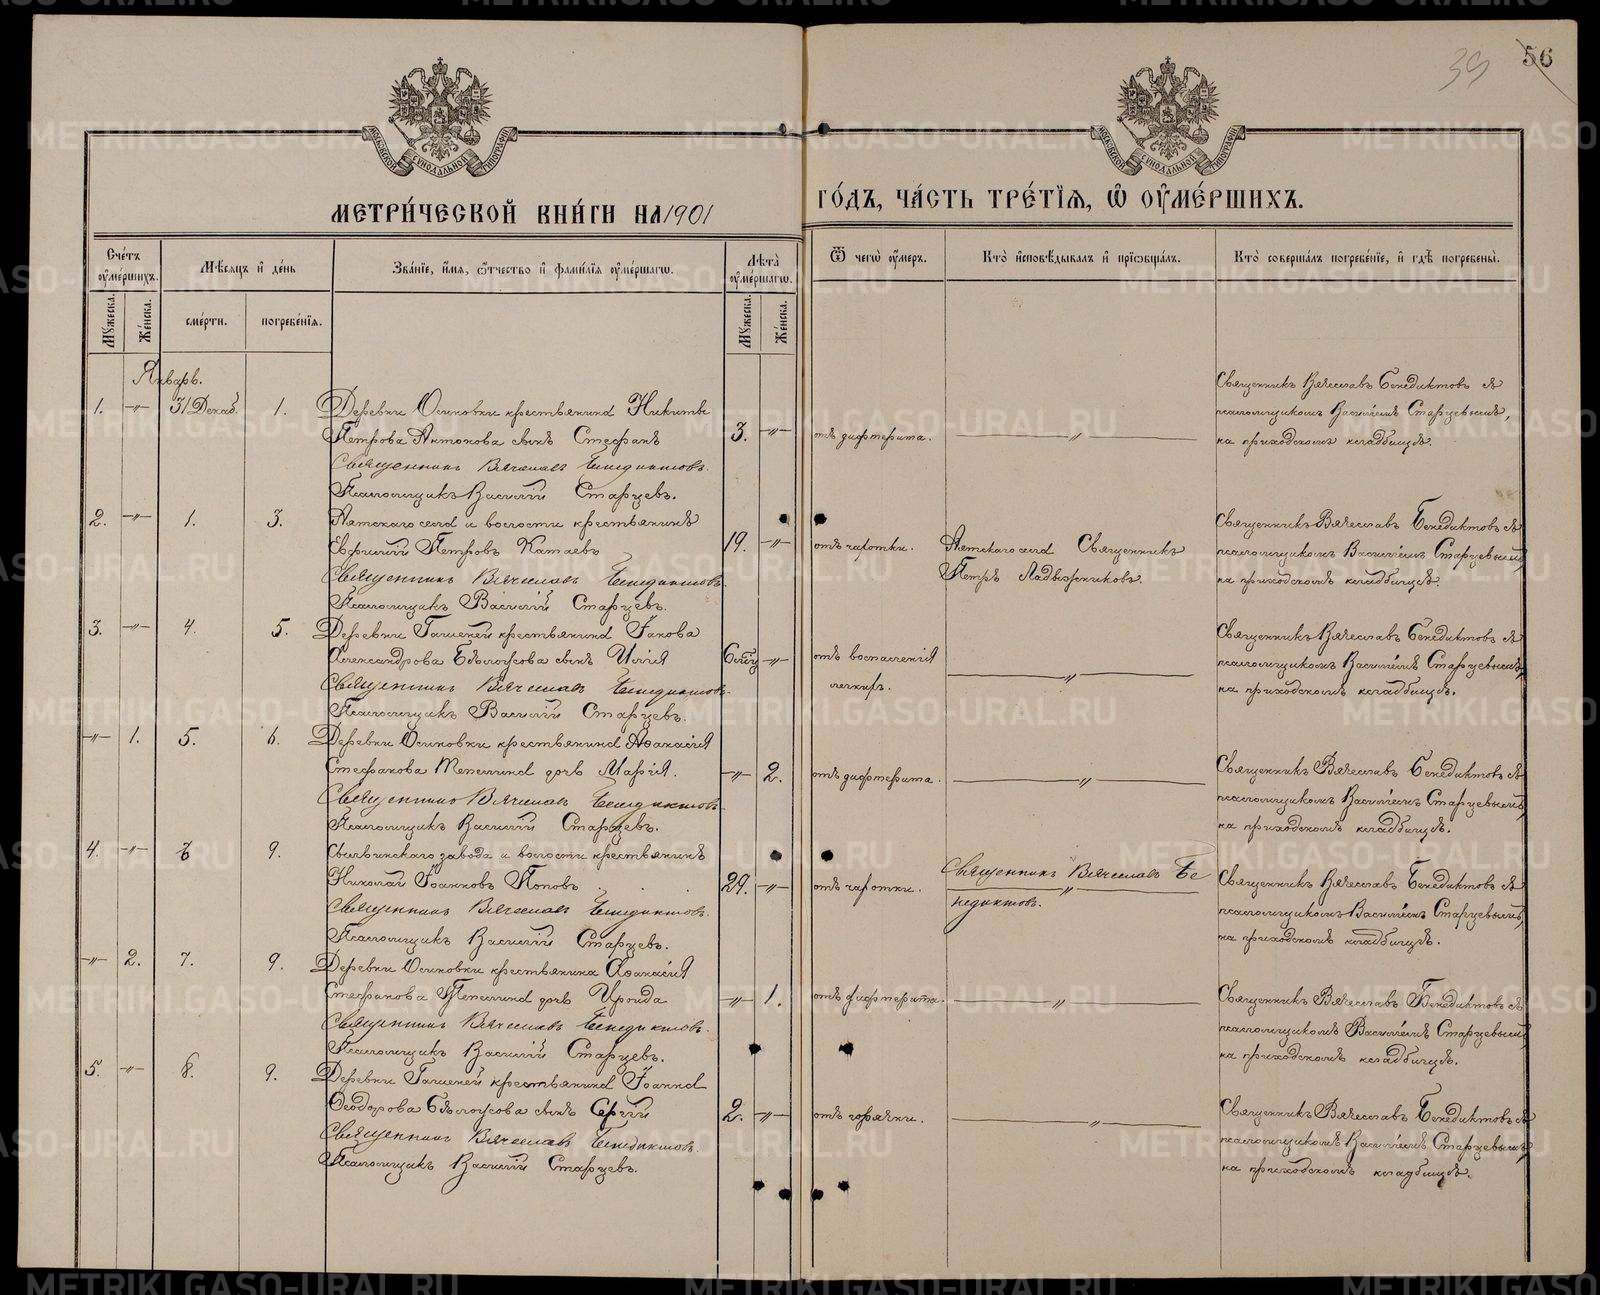 39 56
МЕТРИ́ЧЕСКОЙ КНИ́ГИ НА 1901
ГО́ДЪ, ЧА́СТЬ ТРЕ́ТІЯ, Ѡ ОУМЕ́РШИХЪ.
Сче́тъ оуме́ршихъ.
Му́жеска.
Же́нска.
Мѣ́сяцъ и де́нь
сме́рти.
погребе́нїѧ.
Зва́нїе, и́мѧ, ѻ҆́тчество и фами́лїѧ оуме́ршагѡ.
Лѣ́та оуме́ршагѡ.
Му́жеска.
Же́нска.
Ѿ чегѡ̀ оу́меръ.
Кто̀ и҆сповѣ́дывалъ и прїѡбща́лъ.
Кто̀ соверша́лъ погребе́нїе, и гдѣ̀ погребены̀.
Январь.
1. —"— 31 Декаб. 1.
Деревни Осиновки крестьянина Никиты
Петрова Антонова сынъ Стефанъ
Священникъ Вячеславъ Бенедиктовъ.
Псаломщикъ Василій Старцевъ.
3. —"—
отъ дифтерита.
—"—
Священникъ Вячеславъ Бенедиктовъ съ
псаломщикомъ Василіемъ Старцевымъ,
на приходскомъ кладбищѣ.
2. —"— 1. 3.
Аятскаго села и волости крестьянинъ
Евфимій Петровъ Катаевъ
Священникъ Вячеславъ Бенедиктовъ.
Псаломщикъ Василій Старцевъ.
19. —"—
отъ чахотки.
Аятскаго села Священникъ
Петръ Ладыжниковъ.
Священникъ Вячеславъ Бенедиктовъ съ
псаломщикомъ Василіемъ Старцевымъ,
на приходскомъ кладбищѣ.
3. —"— 4. 5.
Деревни Гашеней крестьянина Іакова
Александрова Бѣлоусова сынъ Илія
Священникъ Вячеславъ Бенедиктовъ.
Псаломщикъ Василій Старцевъ.
—"—
отъ воспаленія
легкихъ.
—"—
Священникъ Вячеславъ Бенедиктовъ съ
псаломщикомъ Василіемъ Старцевымъ,
на приходскомъ кладбищѣ.
—"— 1. 5. 6.
Деревни Осиновки крестьянина Аѳанасія
Стефанова дочь Марія.
Священникъ Вячеславъ Бенедиктовъ.
Псаломщикъ Василій Старцевъ.
—"— 2.
отъ дифтерита.
—"—
Священникъ Вячеславъ Бенедиктовъ съ
псаломщикомъ Василіемъ Старцевымъ,
на приходскомъ кладбищѣ.
4. —"— 9.
завода и волости крестьянинъ
Николай Іоанновъ Поповъ
Священникъ Вячеславъ Бенедиктовъ.
Псаломщикъ Василій Старцевъ.
29. —"—
отъ чахотки.
Священникъ Вячеславъ Бе
—"—
недиктовъ.
Священникъ Вячеславъ Бенедиктовъ съ
псаломщикомъ Василіемъ Старцевымъ,
на приходскомъ кладбищѣ.
—"— 2. 7. 9.
Деревни Осиновки крестьянина Аѳанасія
Стефанова дочь Ираида
Священникъ Вячеславъ Бенедиктовъ.
Псаломщикъ Василій Старцевъ.
—"— 1.
отъ дифтерита.
—"—
Священникъ Вячеславъ Бенедиктовъ съ
псаломщикомъ Василіемъ Старцевымъ,
на приходскомъ кладбищѣ.
5. —"— 8. 9.
Деревни Гашеней крестьянина Іоанна
Ѳеодорова Бѣлоусова сынъ Сергій
Священникъ Вячеславъ Бенедиктовъ.
Псаломщикъ Василій Старцевъ.
2. —"—
отъ горячки.
—"—
Священникъ Вячеславъ Бенедиктовъ съ
псаломщикомъ Василіемъ Старцевымъ,
на приходскомъ кладбищѣ.
METRIKI.GASO-URAL.RU